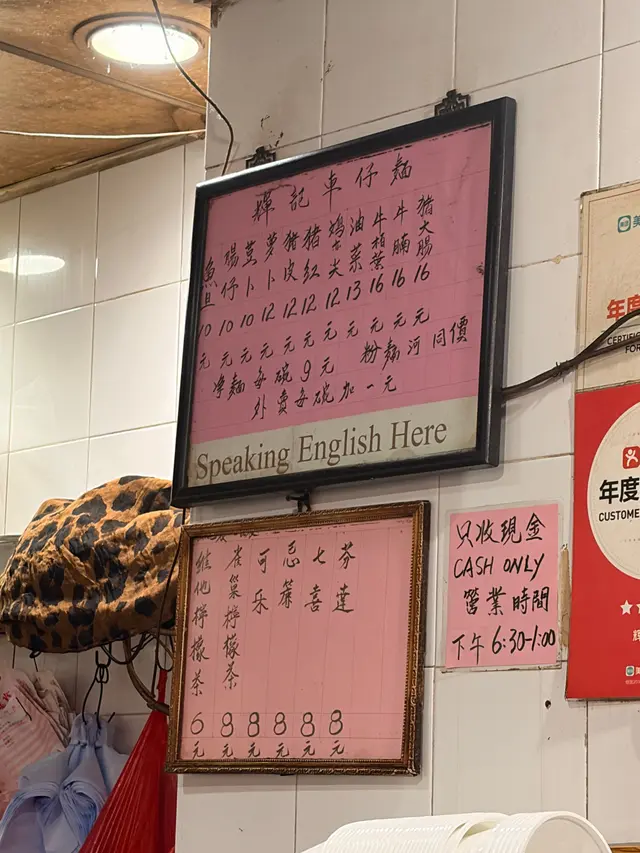 輝記車仔麵
魚旦 10元
腸仔 10元
荳卜 10元
萝卜 12元
猪皮 12元
猪红 12元
12元
油菜 13元
牛柏葉 16元
牛腩 16元
猪大腸 16元
净麵每碗9元 粉麵河同價
外賣每碗加一元
Speaking English Here
維他檸檬茶 6元
雀巢檸檬茶 8元
可乐 8元
忌簾 8元
七喜 8元
芬達 8元
只收現金
CASH ONLY
營業時間
下午6:30-1:00
美
年度
CERTIFIC
FOR
年度
CUSTOME